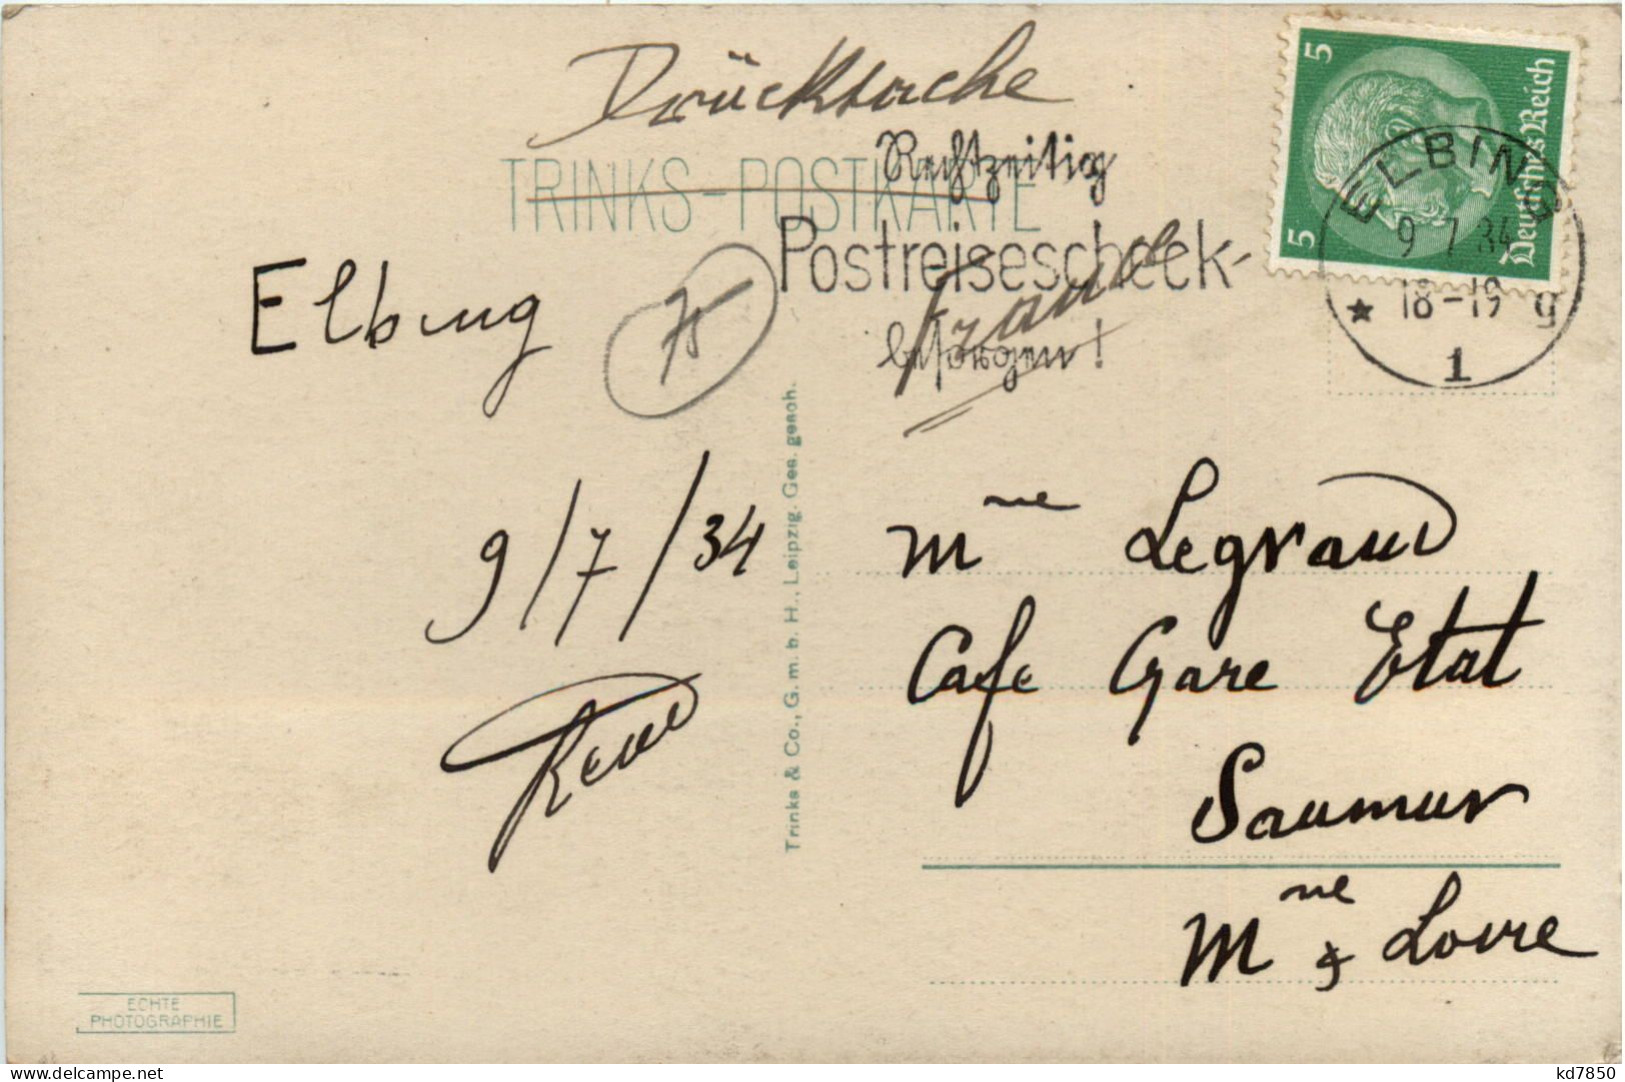 Drücksache
TRINKS-POSTKARTE
Rechtzeitig
Postreisescheck-
besorgen!
France
5
5
Deutsches Reich
ELBING
9 7 34
18-19
★ g
1
Elbing
9/7/34
Trinks & Co., G. m. b. H., Leipzig. Ges. gesch.
Mme Legrand
Cafe Gare Etat
Saumur
Mne & Loire
ECHTE
PHOTOGRAPHIE
www.delcampe.net
kd7850